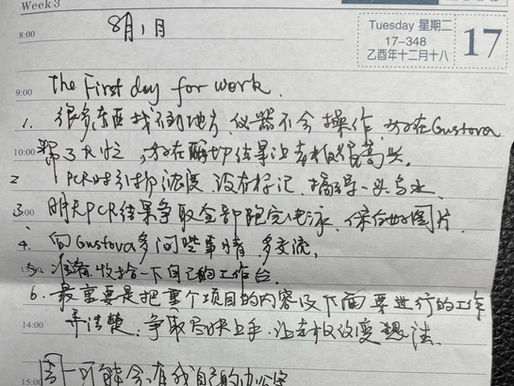 Week 3
8月1日
Tuesday 星期二
17-348
乙酉年十二月十八
17
8:00
9:00
the First day for work.
1. 很多东西找不到地方,仪器不会操作,好在Gustova
10:00
了大忙,好在酶切结果让老板很高兴。
2 PCR时引物浓度没有标记,搞得一头雾水
3. 明天PCR结果争取全部跑完电泳,保存好图片.
4. 向Gustova多问些事情,多交流,
5. 准备收拾一下自己的工作台.
6. 最重要是把整个项目的内容及下面要进行的工作
14:00
弄清楚,争取尽快上手,让老板改变想法.
周一可能会有我自己的办公室